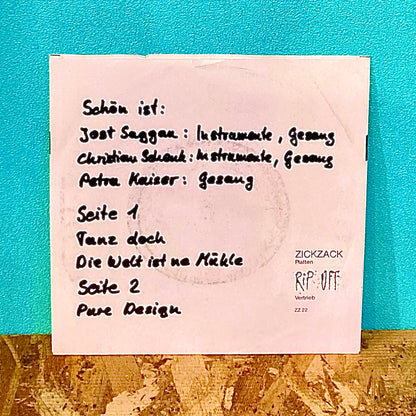 Schön ist:
Jost Saggan: Instrumente, Gesang
Christian Schenk: Instrumente, Gesang
Petra Kaiser: Gesang
Seite 1
Tanz doch
Die Welt ist ne Mühle
Seite 2
Pure Design
ZICKZACK
Platten
RiP OFF
Vertrieb
ZZ 22